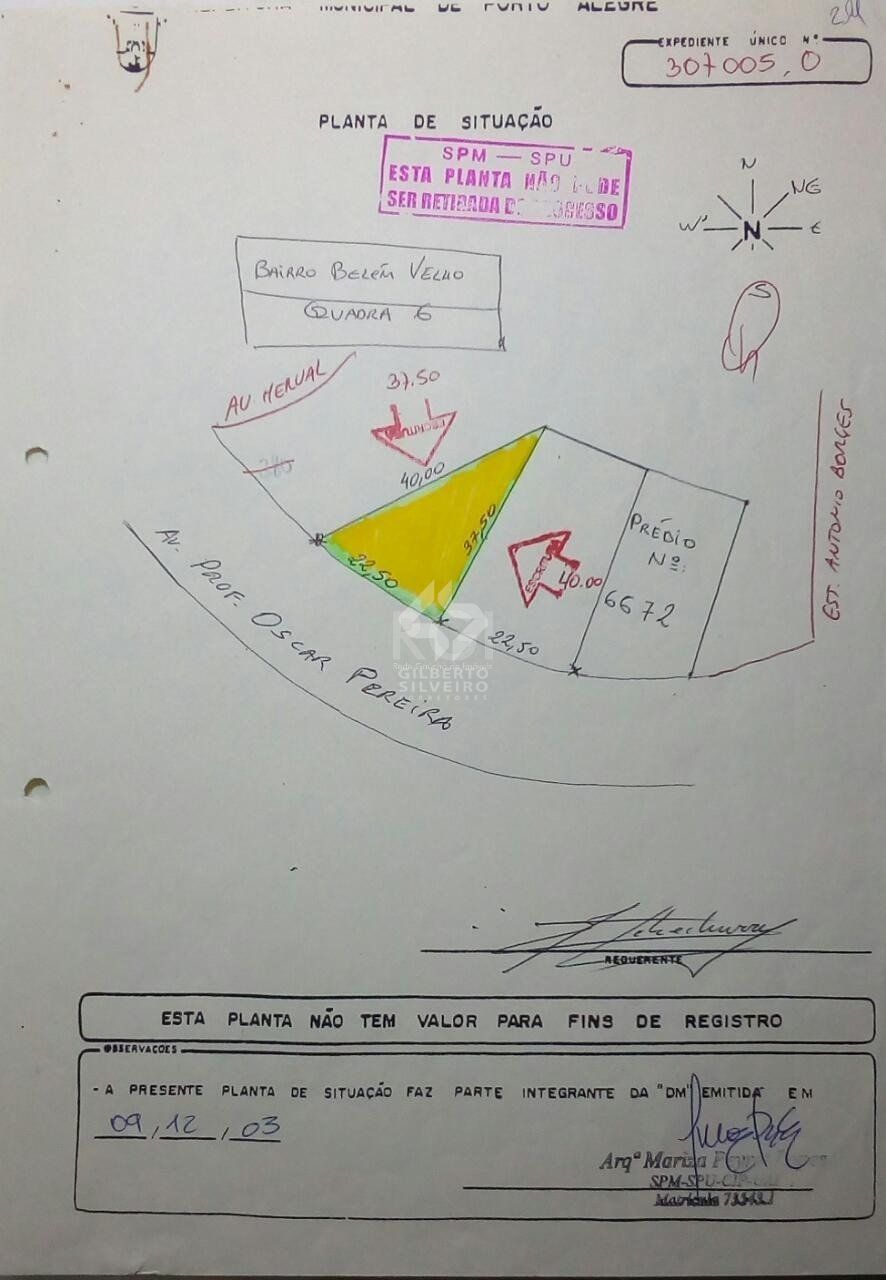 MUNICIPAL DE PORTO ALEGRE
EXPEDIENTE ÚNICO Nº
307005,0
PLANTA DE SITUAÇÃO
SPM — SPU
ESTA PLANTA NÃO
SER RETIRADA
N
NE
W
E
N
S
BAIRRO BELÉM VELHO
QUADRA 6
AV HERVAL
37.50
ESCRITURA
40,00
22,50
37,50
ESCRITURA
40.00
PRÉDIO
Nº:
6672
22,50
EST. ANTONIO BORGES
AV. PROF. OSCAR PEREIRA
Rede Gaúcha de Imóveis
GILBERTO
SILVEIRO
CORRETORES
REQUERENTE
ESTA PLANTA NÃO TEM VALOR PARA FINS DE REGISTRO
OBSERVAÇÕES
- A PRESENTE PLANTA DE SITUAÇÃO FAZ PARTE INTEGRANTE DA "DM" EMITIDA EM
09,12,03
Arqª Mariza
SPM-SPU
Matrícula